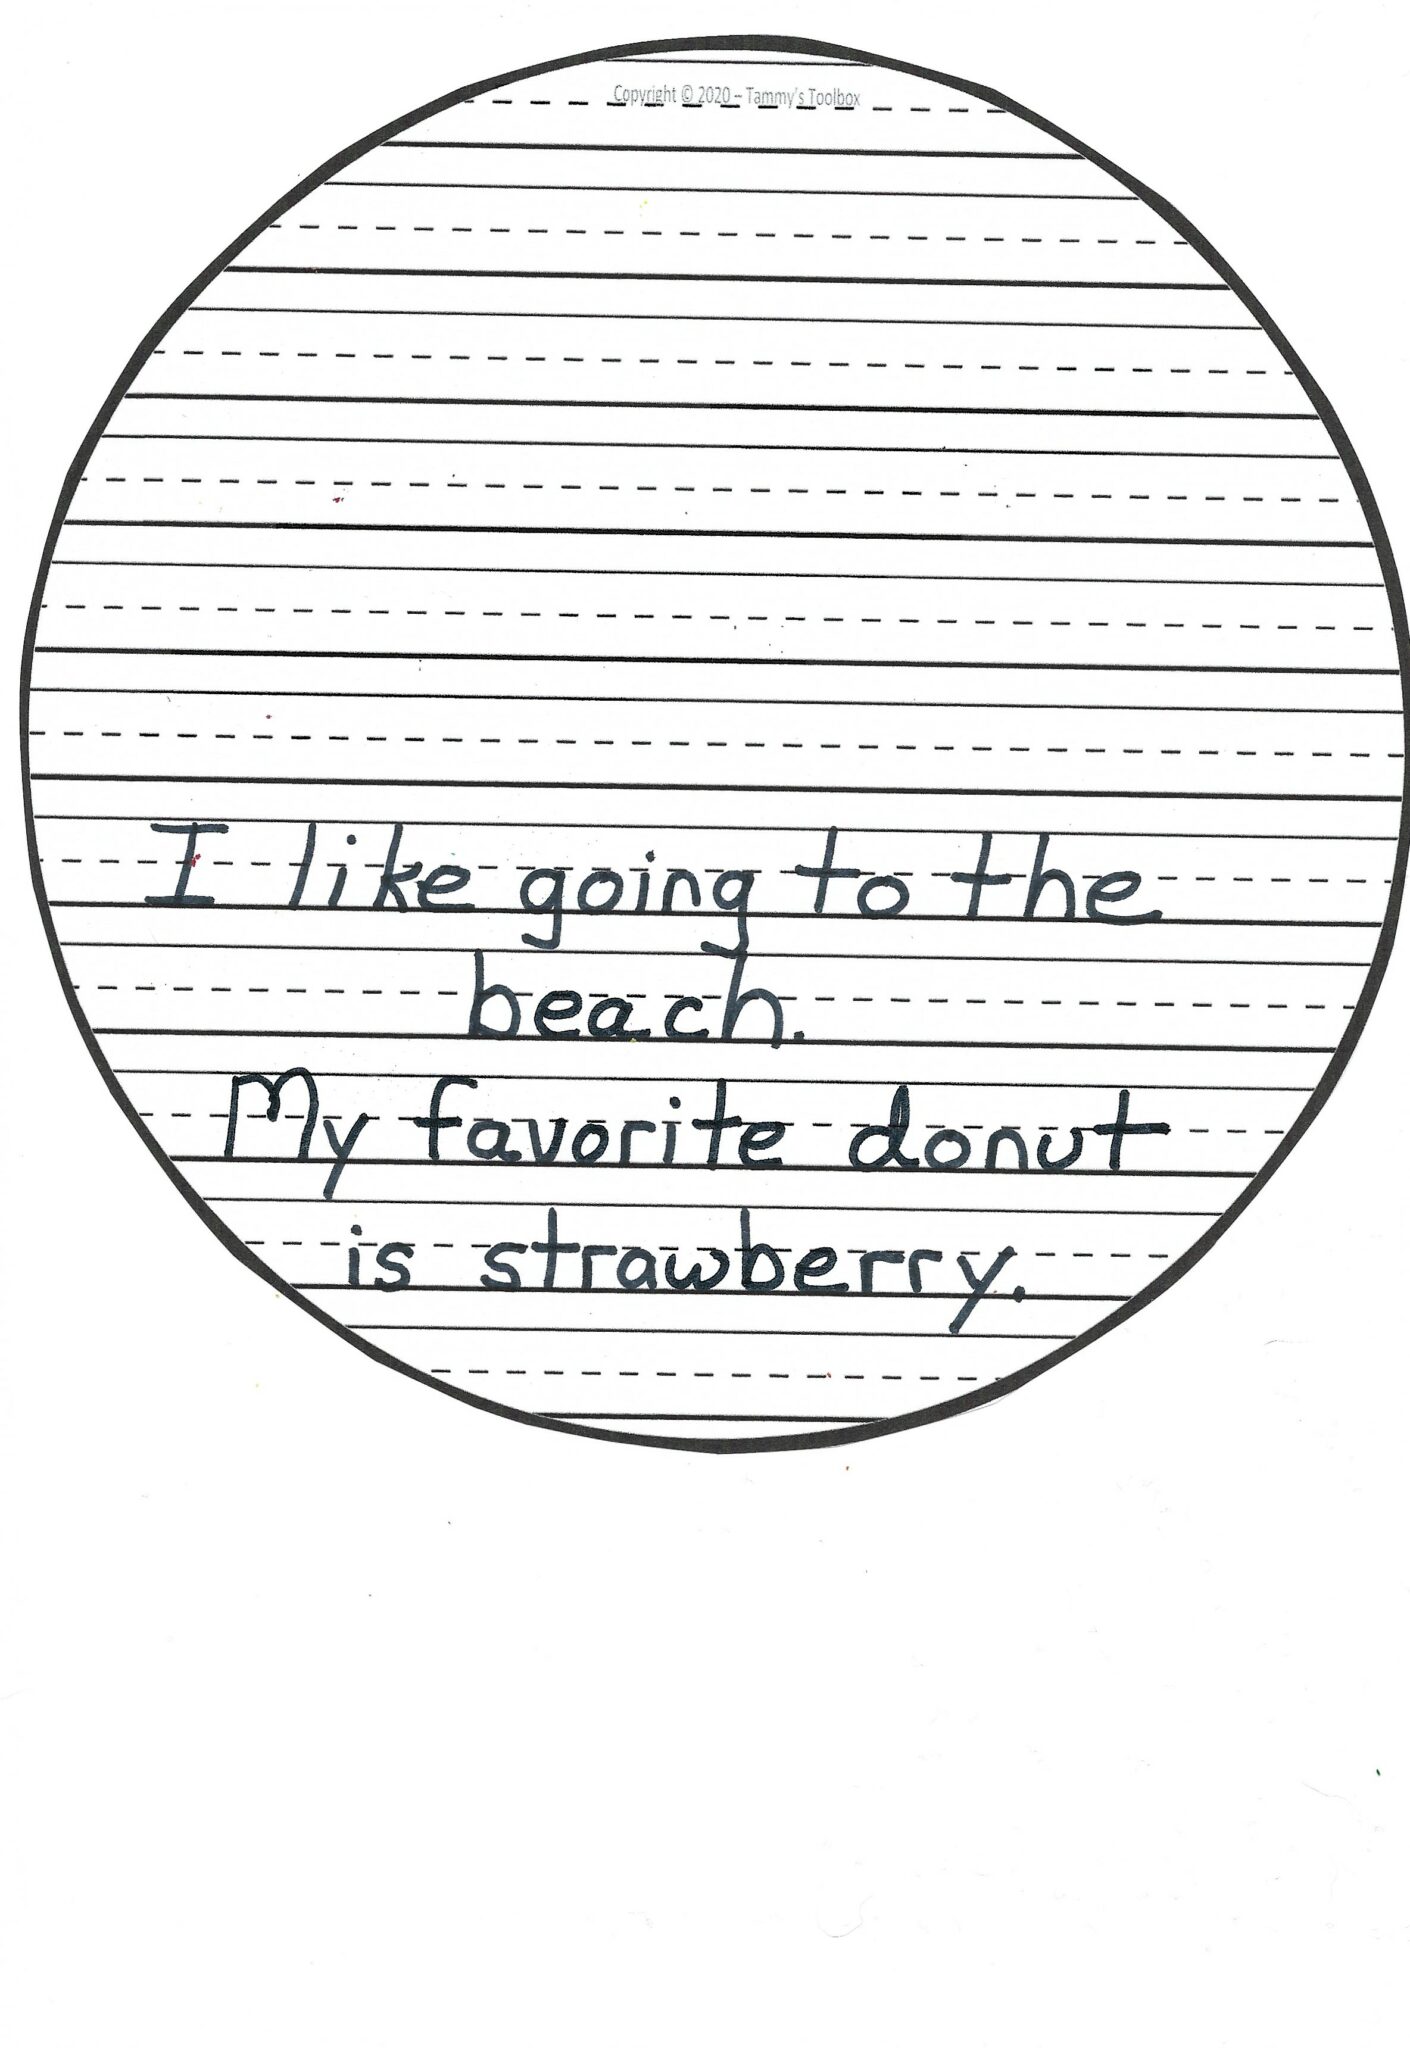 Copyright © 2020 – Tammy's Toolbox
I like going to the
beach.
My favorite donut
is strawberry.